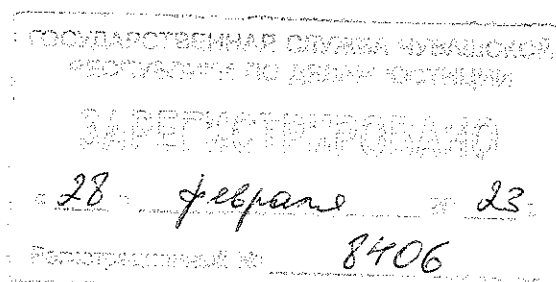 ГОСУДАРСТВЕННАЯ СЛУЖБА ЧУВАШСКОЙ
РЕСПУБЛИКИ ПО ДЕЛАМ ЮСТИЦИИ
ЗАРЕГИСТРИРОВАНО
" 28 " февраля 23
Регистрационный № 8406